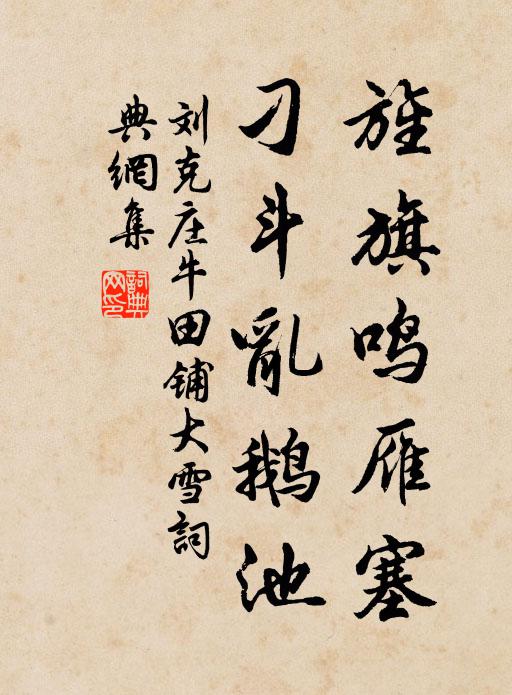 旌旗鸣雁塞
刁斗亂鹅池
刘克庄牛田铺大雪詞
典網集
詞典网印